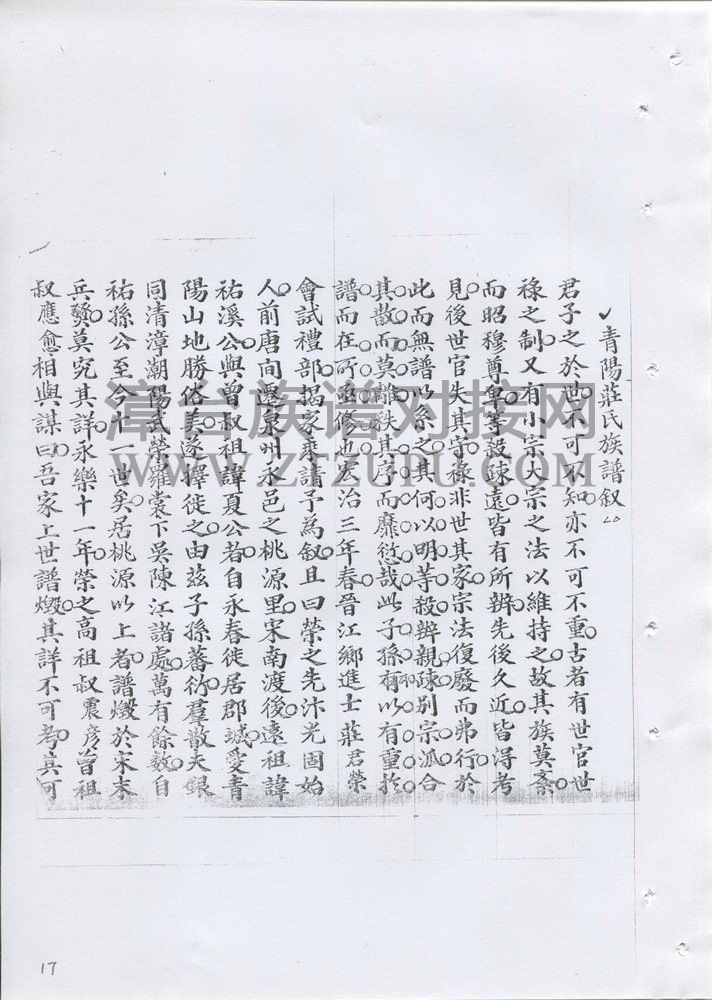 青陽莊氏族譜叙
君子之於世不可不知亦不可不重古者有世官世
祿之制又有小宗大宗之法以維持之故其族莫紊
而昭穆尊卑等殺疎遠皆有所辨先後久近皆得考
見後世官失其守祿非世其家宗法復廢而弗行於
此而無譜以系之其何以明等殺辨親疎別宗派合
其散而莫離秩其序而靡愆哉此子孫有以有重於
譜而在所亟修也宏治三年春晉江鄉進士莊君榮
會試禮部揭家乘請予為叙且曰榮之先汴光固始
人前唐向遷泉州永邑之桃源里宋南渡後遠祖諱
祐溪公與曾叔祖諱夏公者自永春徙居郡城愛青
陽山地勝俗美遂擇徙之由茲子孫蕃衍羣散夫銀
同清漳潮陽武榮羅裳下吳陳江諸處萬有餘數自
祐孫公至今十一世矣居桃源以上者譜燬於宋末
兵燹莫究其詳永樂十一年榮之高祖叔震彥曾祖
叔應愈相與謀曰吾家上世譜燬其詳不可考真可
漳台族谱对接网
WWW.ZTZUPU.COM
17